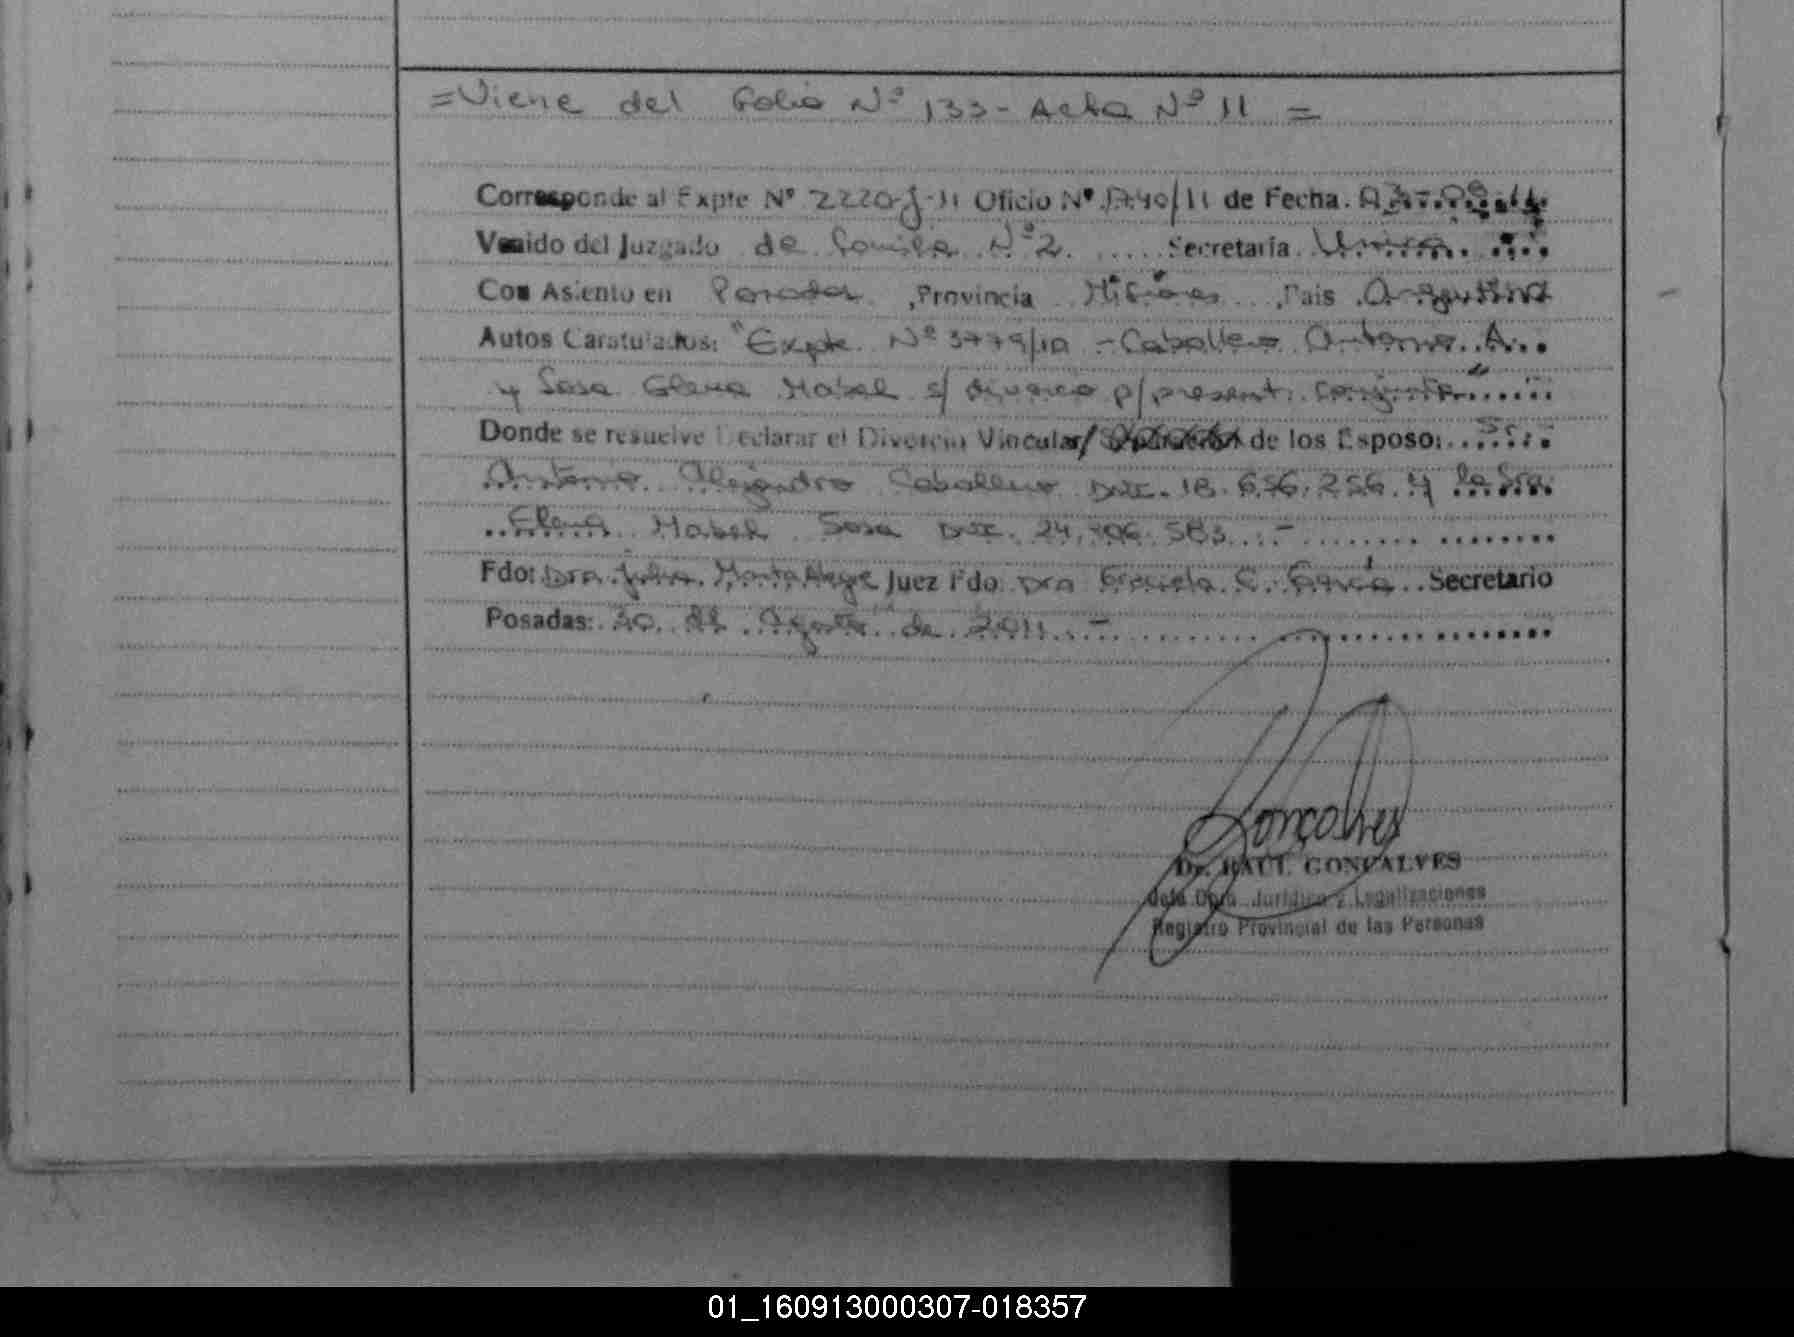 =Viene del Folio Nº 133- Acta Nº 11 =
Corresponde al Expte Nº 2220-J-11 Oficio Nº 1740/11 de Fecha.
Venido del Juzgado de Familia Nº 2. Secretaría. Unica.
Con Asiento en Posadas ,Provincia Misiones ,Pais Argentina
Autos Caratulados: "Expte. Nº 3779/10 - Caballero Antonio A.
y Sosa Elena Mabel s/ divorcio p/ present. conjunta"
Donde se resuelve Declarar el Divorcio Vincular/ de los Esposos: Sr.
Antonio Alejandro Caballero DNI. 18.656.256 y la Sra.
Elena Mabel Sosa DNI. 24.706.583.-
Fdo: Dra. Julia Marta Alegre Juez Fdo Dra Graciela C. García Secretario
Posadas: 30 de Agosto de 2011.-
Gonçalves
Dr. RAUL GONÇALVES
Jefe Dpto. Jurídico y Legalizaciones
Registro Provincial de las Personas
01_160913000307-018357